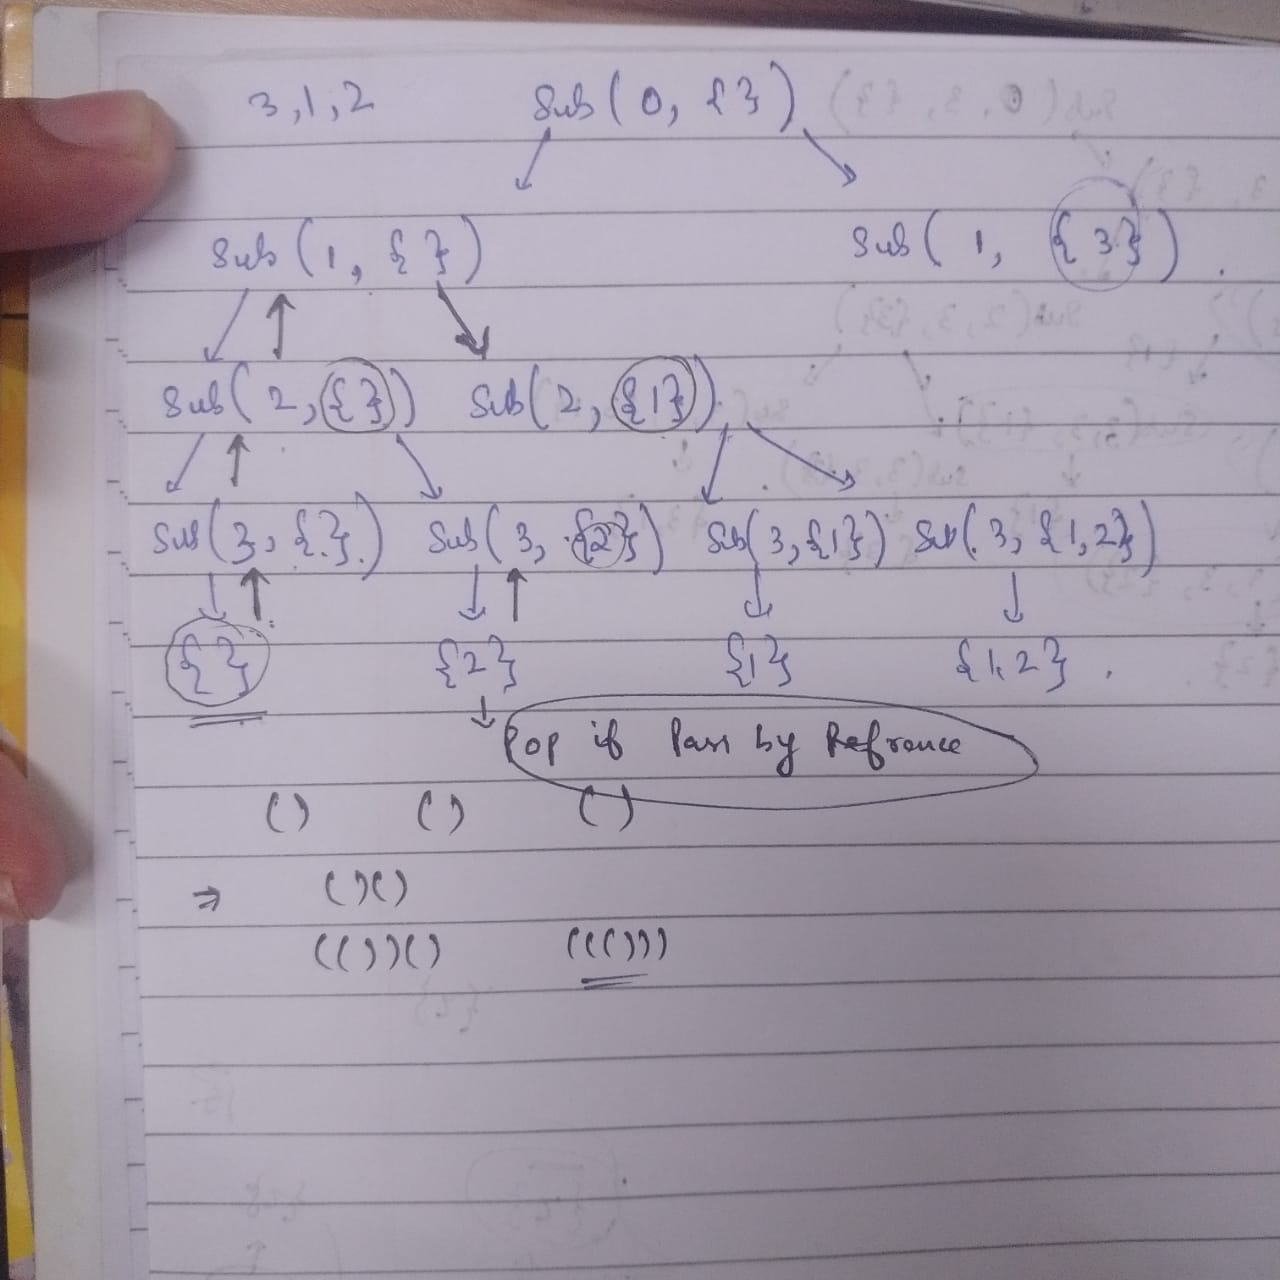 3,1,2 Sub(0, {})
Sub(1, {}) Sub(1, {3}).
Sub(2, {}) Sub(2, {1})
Sub(3, {}) Sub(3, {2}) Sub(3, {1}) Sub(3, {1,2})
{} {2} {1} {1,2}.
Pop if Pass by Refrance
() () ()
⇒ ()()
(())() ((()))